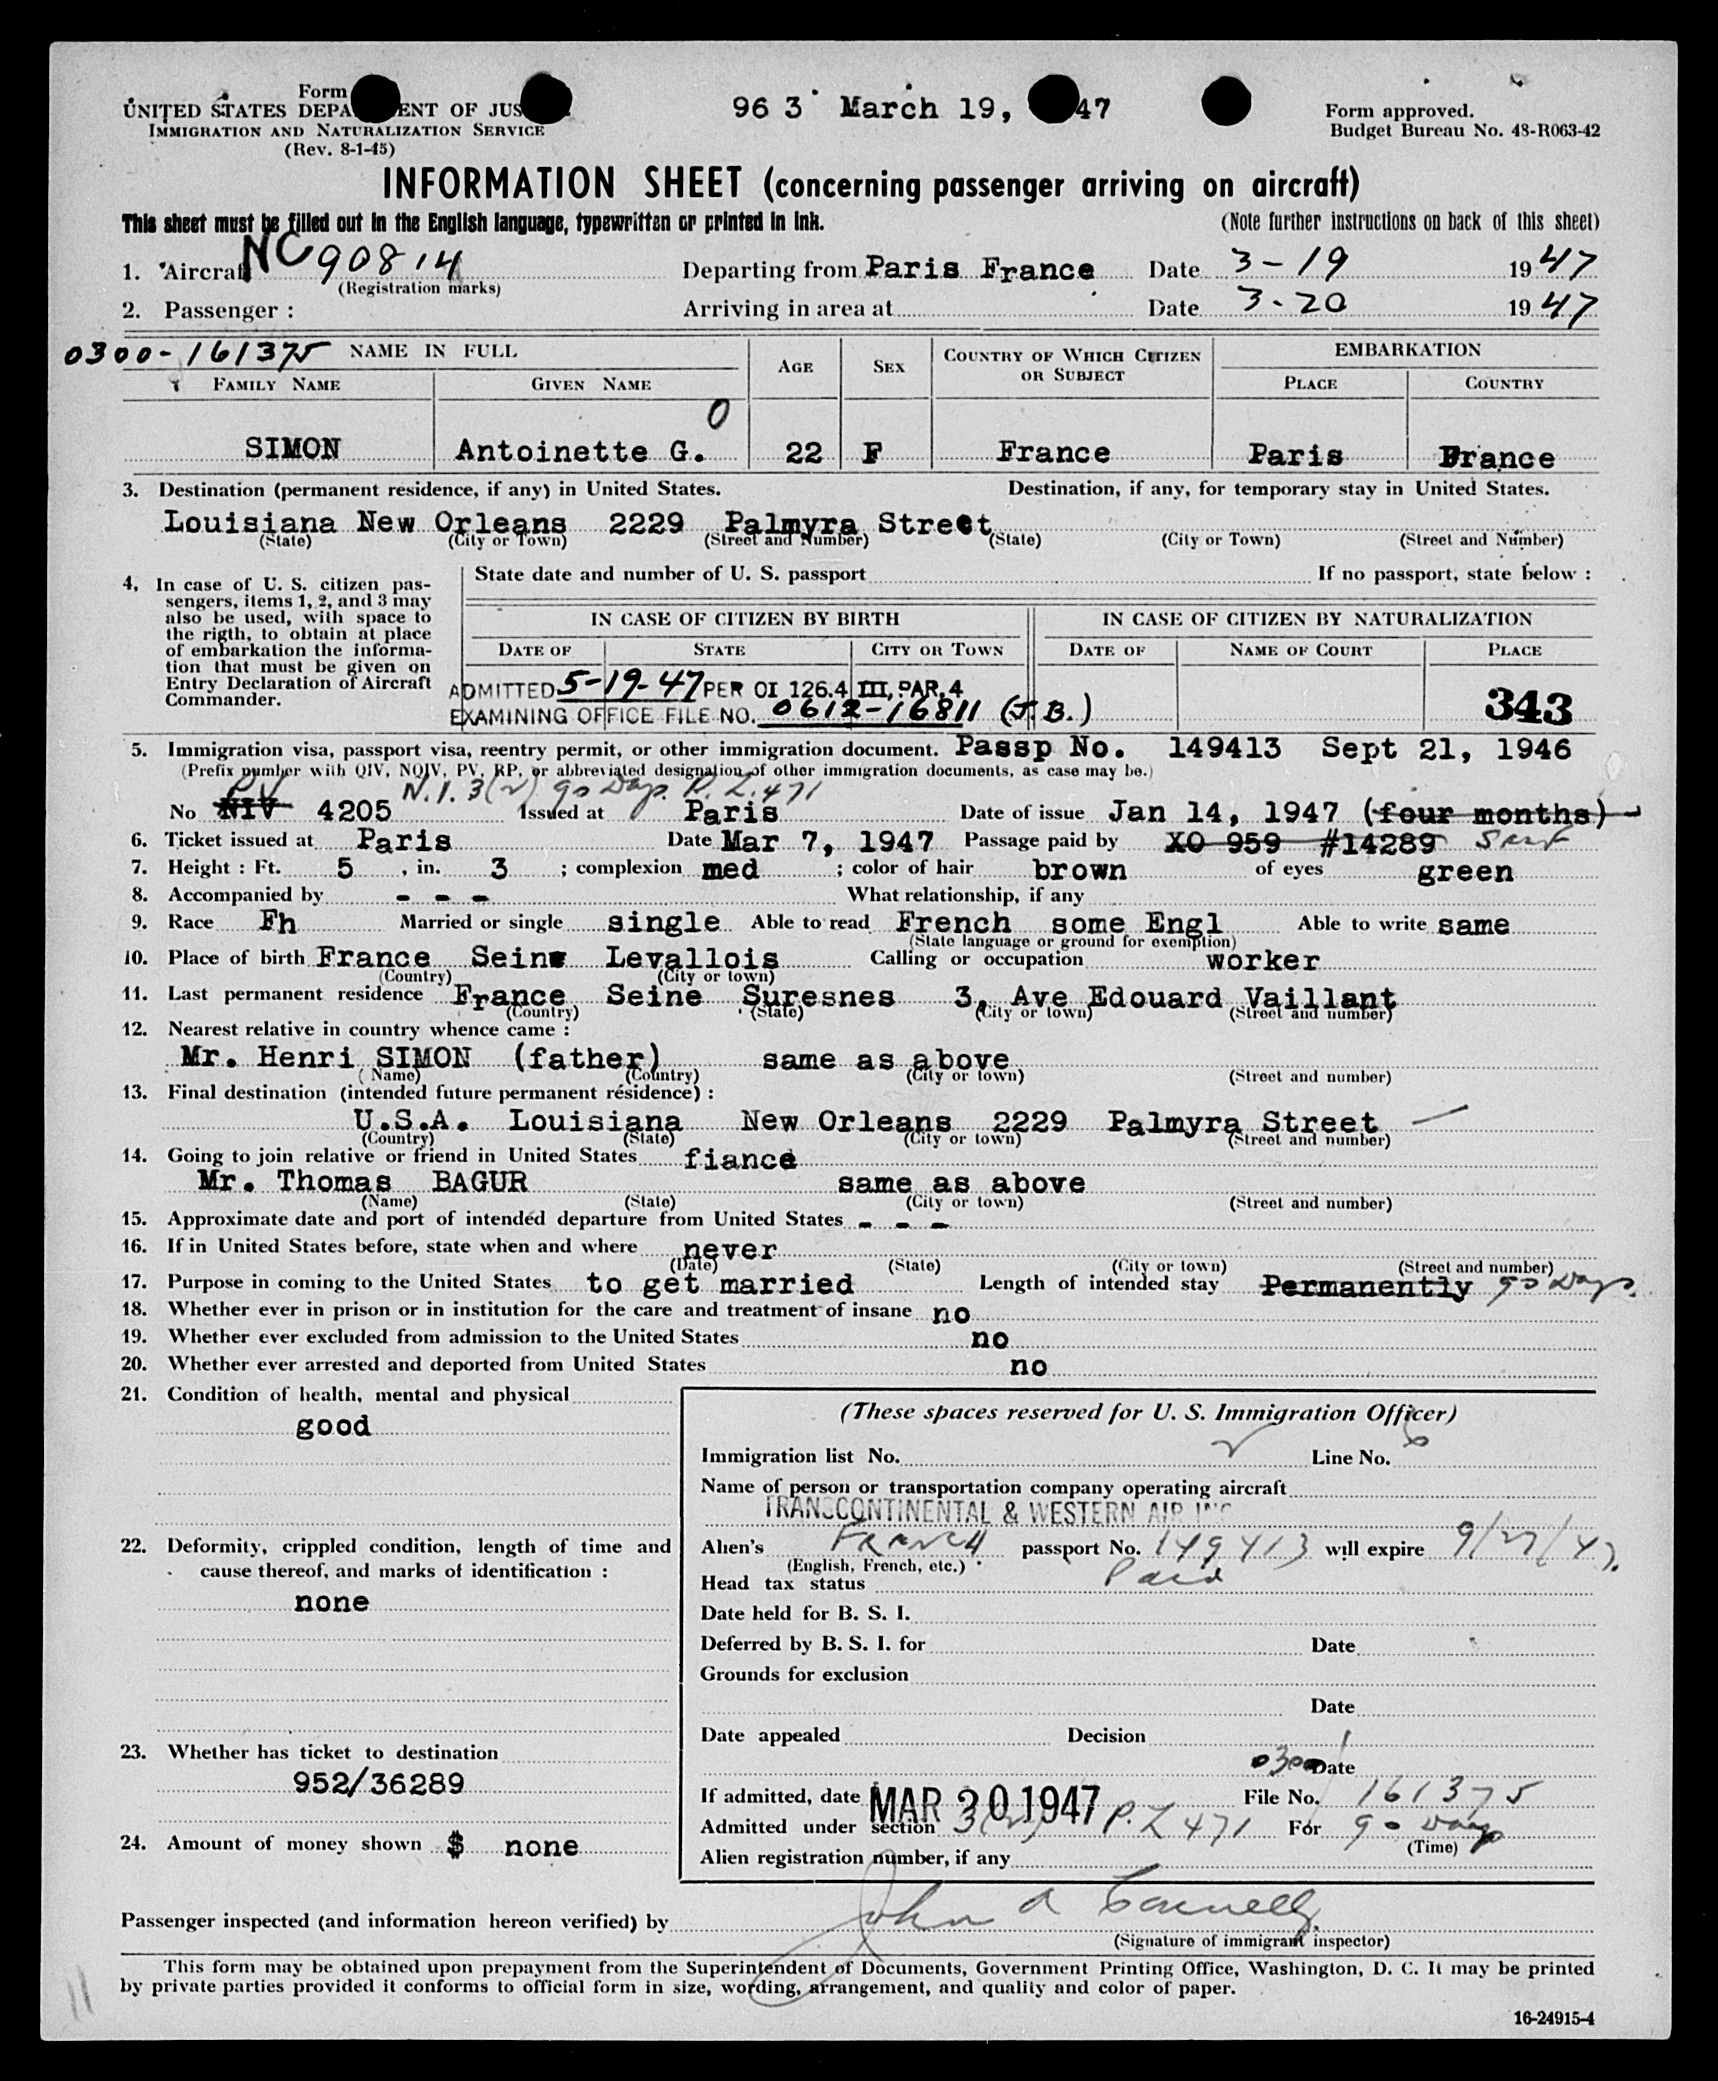 Form
UNITED STATES DEPA ENT OF JUS
IMMIGRATION AND NATURALIZATION SERVICE
(Rev. 8-1-45)
96 3 March 19, 47
Form approved.
Budget Bureau No. 43-R063-42
INFORMATION SHEET (concerning passenger arriving on aircraft)
This sheet must be filled out in the English language, typewritten or printed in ink. (Note further instructions on back of this sheet)
1. Aircraft NC 90814 Departing from Paris France Date 3-19 1947
(Registration marks)
2. Passenger : Arriving in area at Date 3-20 1947
0300-161375 NAME IN FULL AGE SEX COUNTRY OF WHICH CITIZEN OR SUBJECT EMBARKATION
FAMILY NAME GIVEN NAME PLACE COUNTRY
0
SIMON Antoinette G. 22 F France Paris France
3. Destination (permanent residence, if any) in United States. Destination, if any, for temporary stay in United States.
Louisiana New Orleans 2229 Palmyra Street
(State) (City or Town) (Street and Number) (State) (City or Town) (Street and Number)
4. In case of U. S. citizen pas-
sengers, items 1, 2, and 3 may
also be used, with space to
the rigth, to obtain at place
of embarkation the informa-
tion that must be given on
Entry Declaration of Aircraft
Commander.
State date and number of U. S. passport If no passport, state below :
IN CASE OF CITIZEN BY BIRTH IN CASE OF CITIZEN BY NATURALIZATION
DATE OF STATE CITY OR TOWN DATE OF NAME OF COURT PLACE
ADMITTED 5-19-47 PER OI 126.4 III, PAR. 4
EXAMINING OFFICE FILE NO. 0612-16811 (J.B.) 343
5. Immigration visa, passport visa, reentry permit, or other immigration document. Passp No. 149413 Sept 21, 1946
(Prefix number with QIV, NQIV, PV, RP, or abbreviated designation of other immigration documents, as case may be.)
PV N.I. 3(2) 90 Days P.L. 471
No NIV 4205 Issued at Paris Date of issue Jan 14, 1947 (four months)
6. Ticket issued at Paris Date Mar 7, 1947 Passage paid by XO 959 #14289 Self
7. Height : Ft. 5 , in. 3 ; complexion med ; color of hair brown of eyes green
8. Accompanied by - - - What relationship, if any
9. Race Fh Married or single single Able to read French some Engl Able to write same
(State language or ground for exemption)
10. Place of birth France Seine Levallois Calling or occupation worker
(Country) (City or town)
11. Last permanent residence France Seine Suresnes 3, Ave Edouard Vaillant
(Country) (State) (City or town) (Street and number)
12. Nearest relative in country whence came :
Mr. Henri SIMON (father) same as above
(Name) (Country) (City or town) (Street and number)
13. Final destination (intended future permanent résidence) :
U.S.A. Louisiana New Orleans 2229 Palmyra Street
(Country) (State) (City or town) (Street and number)
14. Going to join relative or friend in United States fiance
Mr. Thomas BAGUR same as above
(Name) (State) (City or town) (Street and number)
15. Approximate date and port of intended departure from United States - - -
16. If in United States before, state when and where never
(Date) (State) (City or town) (Street and number)
17. Purpose in coming to the United States to get married Length of intended stay Permanently 90 Days.
18. Whether ever in prison or in institution for the care and treatment of insane no
19. Whether ever excluded from admission to the United States no
20. Whether ever arrested and deported from United States no
21. Condition of health, mental and physical
good
22. Deformity, crippled condition, length of time and
cause thereof, and marks of identification :
none
23. Whether has ticket to destination
952/36289
24. Amount of money shown $ none
(These spaces reserved for U. S. Immigration Officer)
Immigration list No. 2 Line No. 6
Name of person or transportation company operating aircraft
TRANSCONTINENTAL & WESTERN AIR INC
Alien's French passport No. 149413 will expire 9/21/47.
(English, French, etc.)
Head tax status Paid
Date held for B. S. I.
Deferred by B. S. I. for Date
Grounds for exclusion
Date
Date appealed Decision
0300 Date
If admitted, date MAR 20 1947 File No. 161375
Admitted under section 3(2) P.L 471 For 90 Days
(Time)
Alien registration number, if any
Passenger inspected (and information hereon verified) by John A Connelly
(Signature of immigrant inspector)
This form may be obtained upon prepayment from the Superintendent of Documents, Government Printing Office, Washington, D. C. It may be printed
by private parties provided it conforms to official form in size, wording, arrangement, and quality and color of paper.
11
16-24915-4